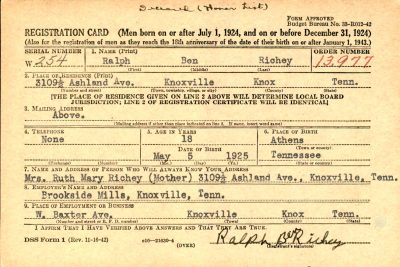 Deceased (Honor List)
Form Approved
Budget Bureau No. 33-R012-42
REGISTRATION CARD (Men born on or after July 1, 1924, and on or before December 31, 1924)
(Also for the registration of men as they reach the 18th anniversary of the date of their birth on or after January 1, 1943.)
SERIAL NUMBER 1. NAME (Print) ORDER NUMBER
W 254 Ralph Ben Richey 13,977
2. PLACE OF RESIDENCE (Print)
3109½ Ashland Ave. Knoxville Knox Tenn.
(Number and street) (Town, township, village, or city) (County) (State)
[THE PLACE OF RESIDENCE GIVEN ON LINE 2 ABOVE WILL DETERMINE LOCAL BOARD
JURISDICTION; LINE 2 OF REGISTRATION CERTIFICATE WILL BE IDENTICAL]
3. MAILING ADDRESS
Above.
[Mailing address if other than place indicated on line 2. If same, insert word same]
4. TELEPHONE 5. AGE IN YEARS 6. PLACE OF BIRTH
None 18 Athens
DATE OF BIRTH (Town or county)
May 5 1925 Tennessee
(Mo.) (Day) (Yr.) (State or country)
7. NAME AND ADDRESS OF PERSON WHO WILL ALWAYS KNOW YOUR ADDRESS
Mrs. Ruth Mary Richey (Mother) 3109½ Ashland Ave., Knoxville, Tenn.
8. EMPLOYER'S NAME AND ADDRESS
Brookside Mills, Knoxville, Tenn.
9. PLACE OF EMPLOYMENT OR BUSINESS
W. Baxter Ave. Knoxville Knox Tenn.
(Number and street or R. F. D. number) (Town) (County) (State)
I AFFIRM THAT I HAVE VERIFIED ABOVE ANSWERS AND THAT THEY ARE TRUE.
DSS Form 1 (Rev. 11-16-42) (OVER) Ralph B Richey
(Registrant's signature)